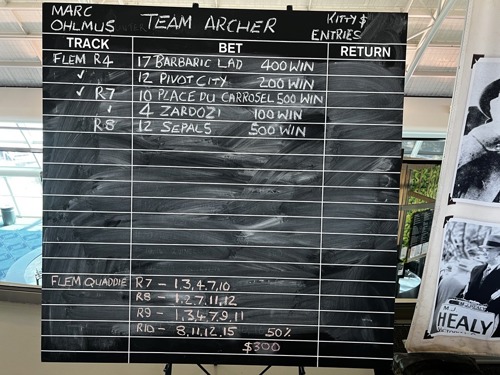 MARC OHLMUS TEAM ARCHER KITTY $ ENTRIES
TRACK BET RETURN
FLEM R4 17 BARBARIC LAD 400 WIN
✓ 12 PIVOT CITY 200 WIN
✓ R7 10 PLACE DU CARROSEL 500 WIN
4 ZARDOZI 100 WIN
R8 12 SEPALS 500 WIN
FLEM QUADDIE R7 - 1,3,4,7,10
R8 - 1,2,7,11,12
R9 - 1,3,4,7,9,11
R10 - 8,11,12,15 50%
$300
M.J.
HEALY